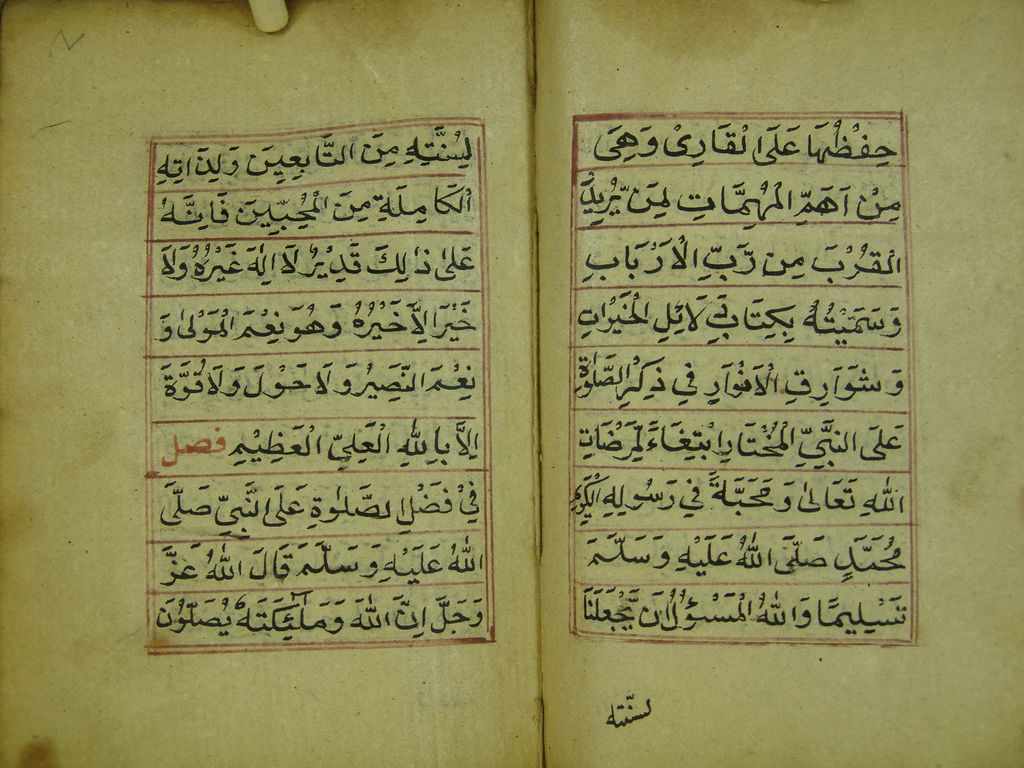 حِفْظُهَا عَلَى الْقَارِئْ وَهِيَ
مِنْ اَهَمِّ الْمُهِمَّاتِ لِمَنْ يُّرِيْدُ
الْقُرْبَ مِنْ رَّبِّ الْاَرْبَابِ
وَسَمَّيْتُهُ بِكِتَابِ دَلَائِلِ الْخَيْرَاتِ
وَشَوَارِقِ الْاَنْوَارِ فِي ذِكْرِ الصَّلٰوةِ
عَلَى النَّبِيِّ الْمُخْتَارِ ابْتِغَاءً لِّمَرْضَاتِ
اللهِ تَعَالٰى وَمَحَبَّةً فِي رَسُولِهِ الْكَرِيمِ
مُحَمَّدٍ صَلَّى اللهُ عَلَيْهِ وَسَلَّمَ
تَسْلِيمًا وَاللهُ الْمَسْؤُلُ اَنْ يَّجْعَلَنَا
لسنّته
لِسُنَّتِهِ مِنَ التَّابِعِيْنَ وَلِذَاتِهِ
الْكَامِلَةِ مِنَ الْمُحِبِّيْنَ فَاِنَّهُ
عَلٰى ذٰلِكَ قَدِيْرٌ لَا اِلٰهَ غَيْرُهُ وَلَا
خَيْرَ اِلَّا خَيْرُهُ وَهُوَ نِعْمَ الْمَوْلٰى وَ
نِعْمَ النَّصِيْرُ وَلَا حَوْلَ وَلَا قُوَّةَ
اِلَّا بِاللهِ الْعَلِيِّ الْعَظِيْمِ فصل
فِيْ فَضْلِ الصَّلٰوةِ عَلَى النَّبِيِّ صَلَّى
اللهُ عَلَيْهِ وَسَلَّمَ قَالَ اللهُ عَزَّ
وَجَلَّ اِنَّ اللهَ وَمَلٰٓئِكَتَهُ يُصَلُّوْنَ